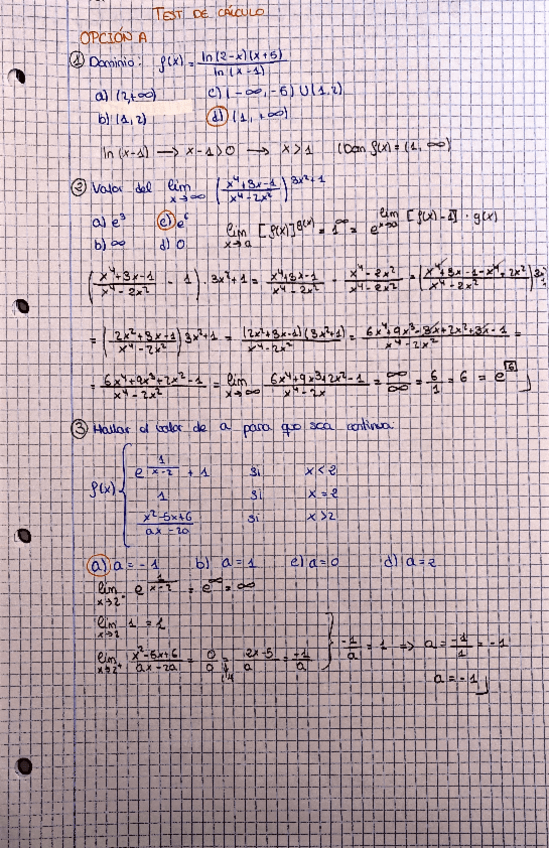 TEST DE CÁLCULO
OPCIÓN A
① Dominio: f(x) = ln(2-x)(x+5) / ln(x-1)
a) (2,+∞) c) (-∞,-5) U (1,2)
b) (1,2) d) (1,+∞)
ln(x-1) → x-1>0 → x>1 (Dom f(x) = (1,∞)
② Valor del lim x→∞ ((x⁴+3x-1)/(x⁴-2x²))^(3x²+1)
a) e³ c) e⁶
b) ∞ d) 0
lim x→a [f(x)]^g(x) = 1^∞ = e^(lim x→a [f(x)-1]·g(x))
((x⁴+3x-1)/(x⁴-2x²) - 1) · 3x²+1 = (x⁴+3x-1)/(x⁴-2x²) - (x⁴-2x²)/(x⁴-2x²) = ((x⁴+3x-1-x⁴+2x²)/(x⁴-2x²))
= ((2x²+3x-1)/(x⁴-2x²)) 3x²+1 = (2x²+3x-1)(3x²+1)/(x⁴-2x²) = (6x⁴+9x³-3x+2x²+3x-1)/(x⁴-2x²) =
= (6x⁴+9x³+2x²-1)/(x⁴-2x²) = lim x→∞ (6x⁴+9x³+2x²-1)/(x⁴-2x) = ∞/∞ = 6/1 = 6 = e⁶
③ Hallar el valor de a para que sea continua
f(x) {
e^(1/(x-2)) + 1 si x<2
1 si x=2
(x²-5x+6)/(ax-2a) si x>2
a) a=-1 b) a=1 c) a=0 d) a=2
lim x→2⁻ e^(1/(x-2)) = e^∞ = ∞
lim x→2 1 = 1
lim x→2⁺ (x²-5x+6)/(ax-2a) = 0/0 = (2x-5)/a = -1/a } -1/a = 1 ⇒ a = -1/1 = -1
L'H
a = -1